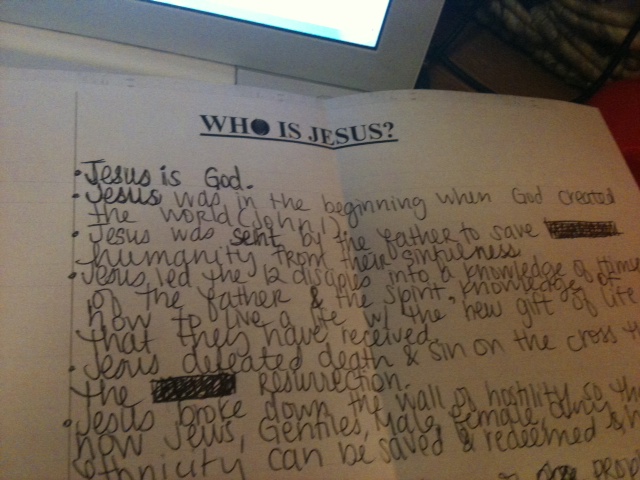 WHO IS JESUS?
• Jesus is God.
• Jesus was in the beginning when God created
the world (John 1).
• Jesus was sent by the father to save
humanity from their sinfulness
• Jesus led the 12 disciples into a knowledge of
of the father & the spirit, knowledge of
how to live a life w/ the new gift of life
that they have received.
• Jesus defeated death & sin on the cross
the resurrection.
• Jesus broke down the wall of hostility, so
now Jews, Gentiles, Male, female,
ethnicity can be saved & redeemed &